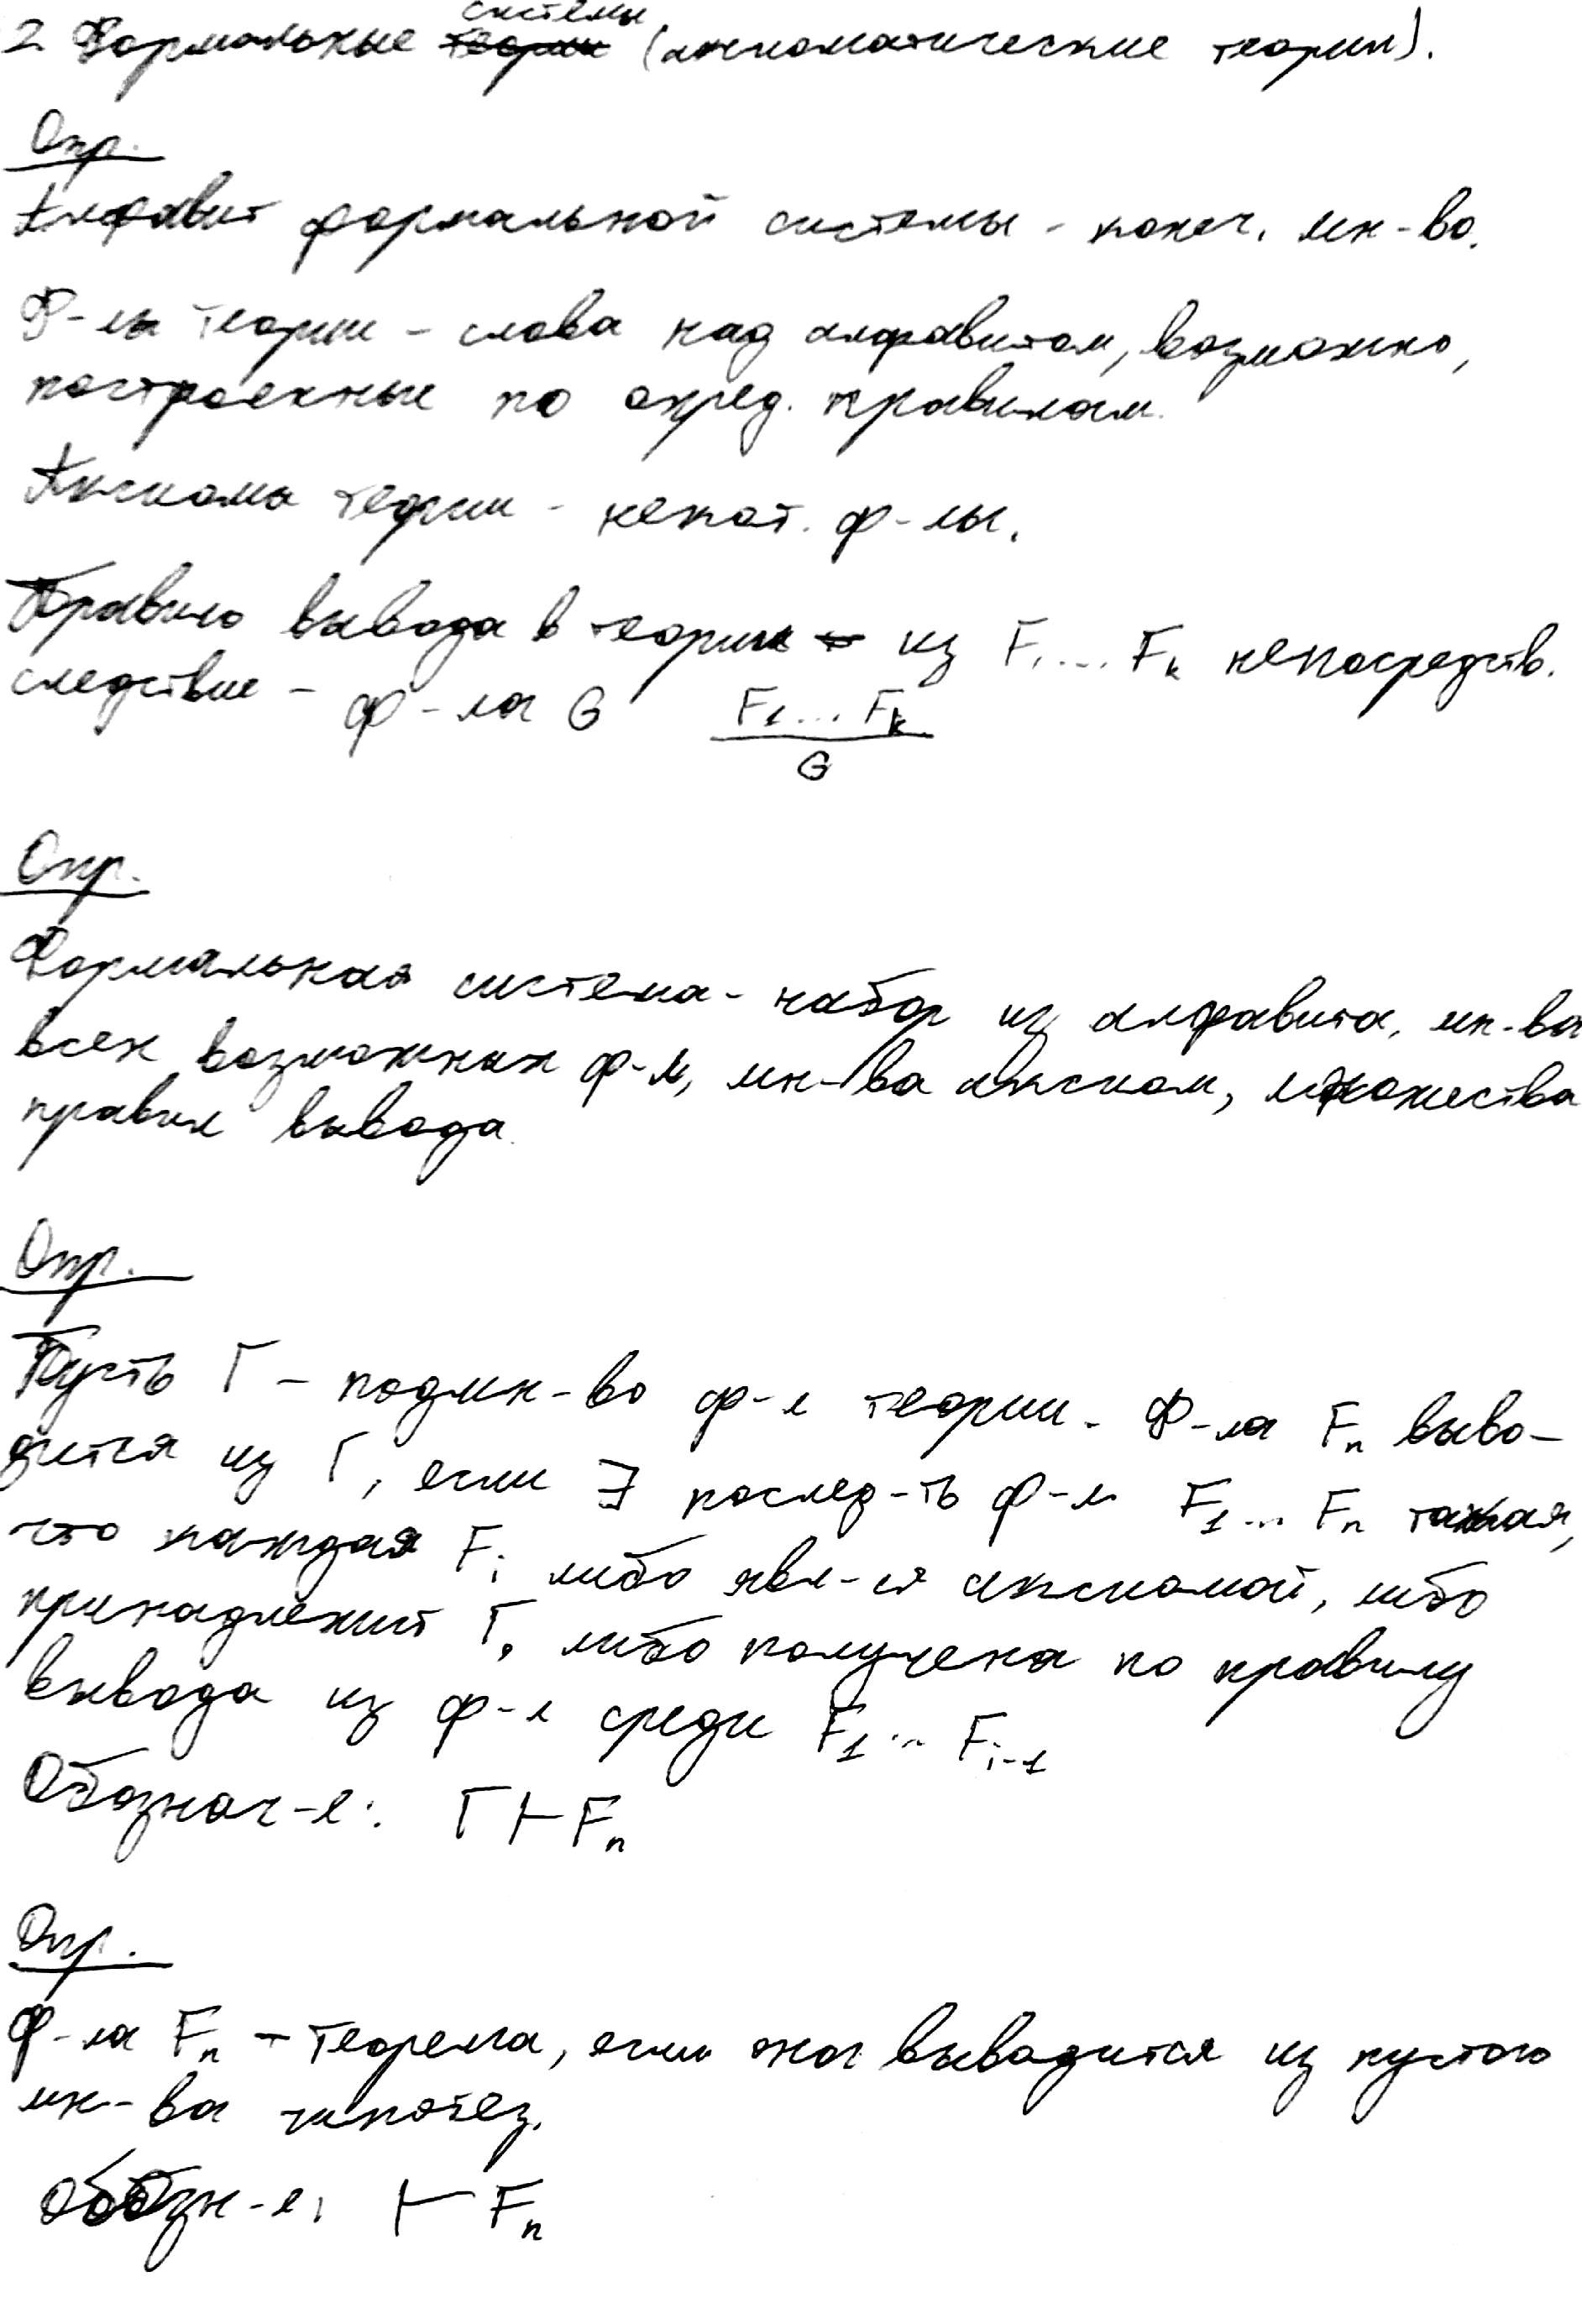 2. Формальные системы (аксиоматические теории).
Опр.
Алфавит формальной системы - конеч. мн-во.
Ф-лы теории - слова над алфавитом, возможно,
построенные по опред. правилам.
Аксиомы теории - некот. ф-лы.
Правило вывода в теории из F₁ ... Fₖ непосредств.
следствие - ф-ла G F₁ ... Fₖ / G
Опр.
Формальная система - набор из алфавита, мн-ва
всех возможных ф-л, мн-ва аксиом, множества
правил вывода.
Опр.
Пусть Г - подмн-во ф-л теории. Ф-ла Fₙ выво-
дится из Г, если ∃ послед-ть ф-л F₁ ... Fₙ такая,
что каждая Fᵢ либо явл-ся аксиомой, либо
принадлежит Г, либо получена по правилу
вывода из ф-л среди F₁ ... Fᵢ₋₁
Обознач-е: Г ⊢ Fₙ
Опр.
Ф-ла Fₙ - теорема, если она выводится из пустого
мн-ва гипотез.
Обозн-е: ⊢ Fₙ